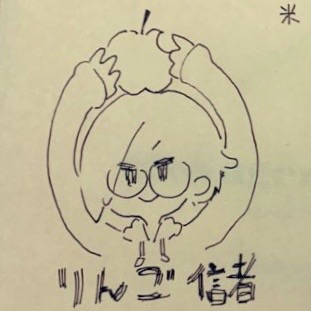 米
りんご信者